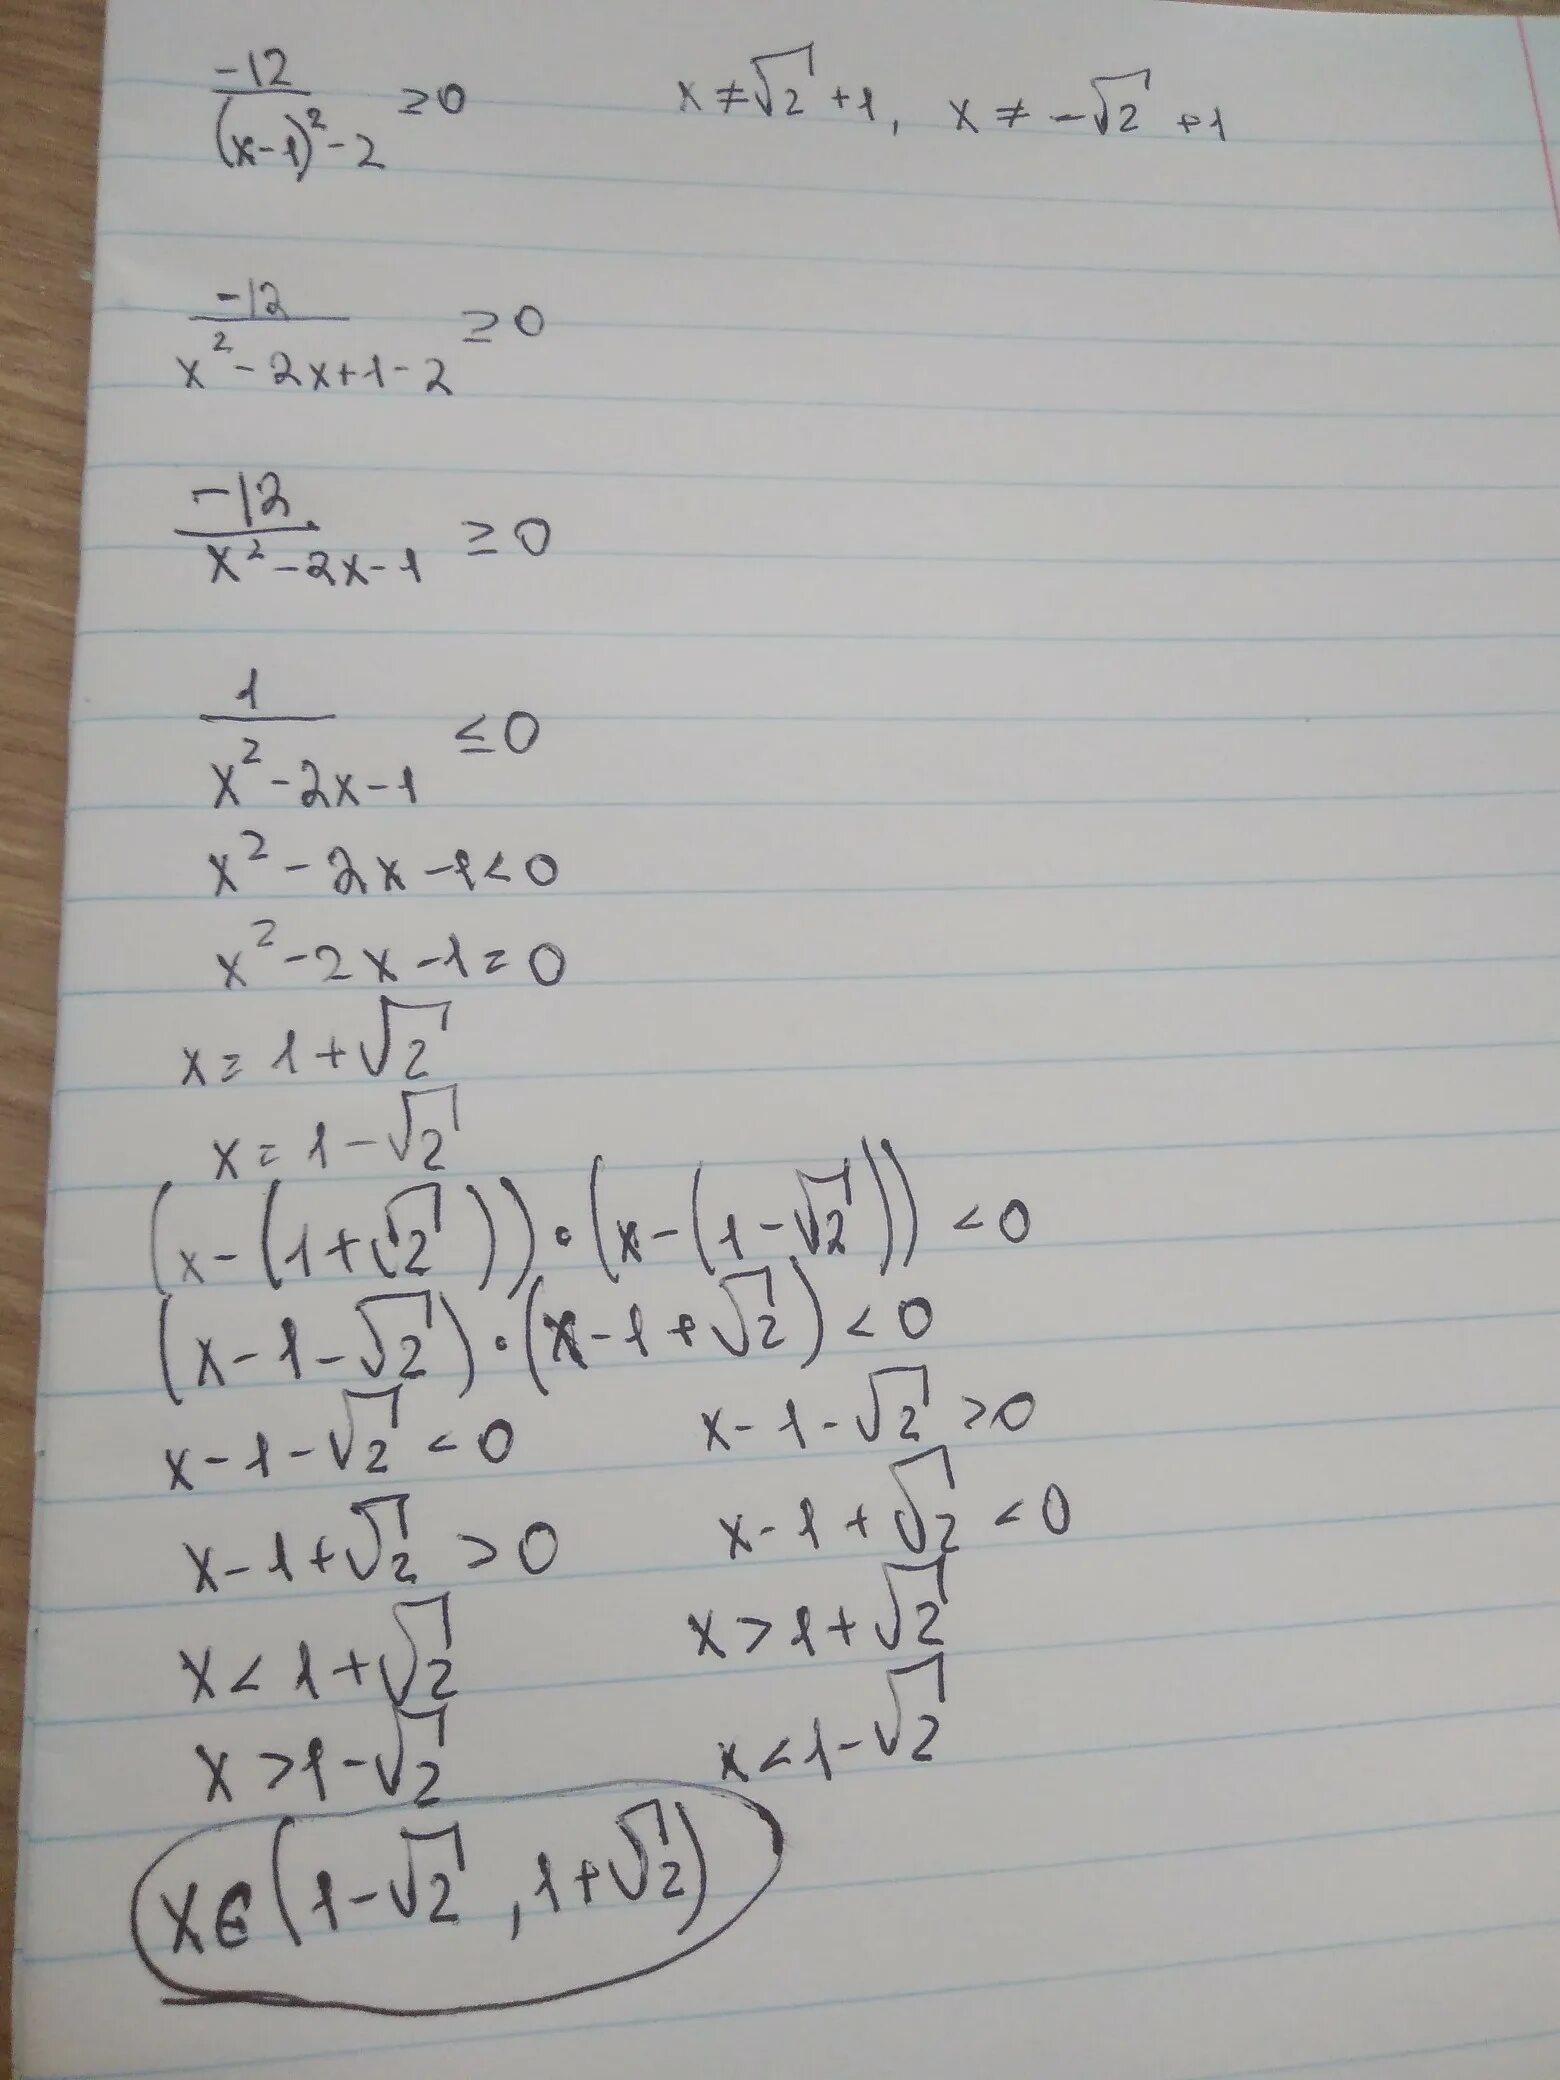 -12/((x-1)²-2) ≥0    x≠√2+1, x≠-√2+1
-12/(x²-2x+1-2) ≥0
-12/(x²-2x-1) ≥0
1/(x²-2x-1) ≤0
x²-2x-1<0
x²-2x-1=0
x=1+√2
x=1-√2
(x-(1+√2))·(x-(1-√2))<0
(x-1-√2)·(x-1+√2)<0
x-1-√2<0    x-1-√2>0
x-1+√2>0    x-1+√2<0
x<1+√2    x>1+√2
x>1-√2    x<1-√2
x∈(1-√2, 1+√2)